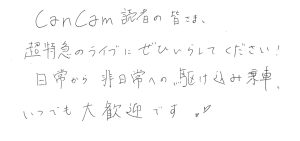 CanCam 読者の皆さま、
超特急のライブにぜひいらしてください!
日常から非日常への駆け込み乗車、
いつでも大歓迎です。♡